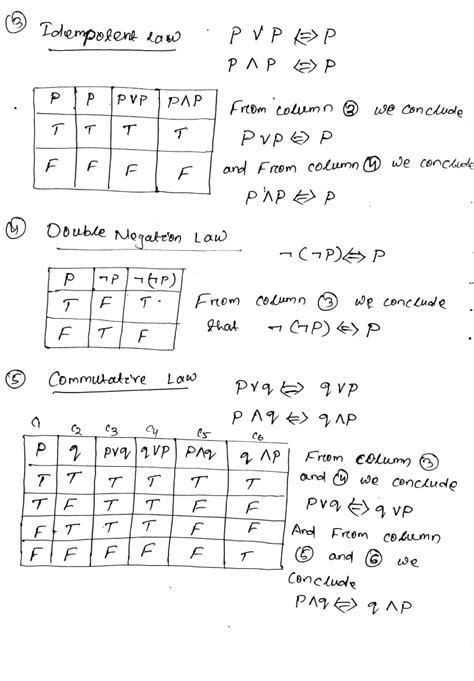 ③ Idempotent Law P ∨ P ⇔ P
P ∧ P ⇔ P
P P P∨P P∧P
T T T T
F F F F
From column ③ we conclude
P∨P ⇔ P
and From column ④ we conclude
P∧P ⇔ P
④ Double Negation Law
¬(¬P) ⇔ P
P ¬P ¬(¬P)
T F T
F T F
From column ③ we conclude
that ¬(¬P) ⇔ P
⑤ Commutative Law P∨q ⇔ q∨P
P∧q ⇔ q∧P
C1 C2 C3 C4 C5 C6
P q P∨q q∨P P∧q q∧P
T T T T T T
T F T T F F
F T T T F F
F F F F F T
From column ③
and ④ we conclude
P∨q ⇔ q∨P
And From column
⑤ and ⑥ we
conclude
P∧q ⇔ q∧P